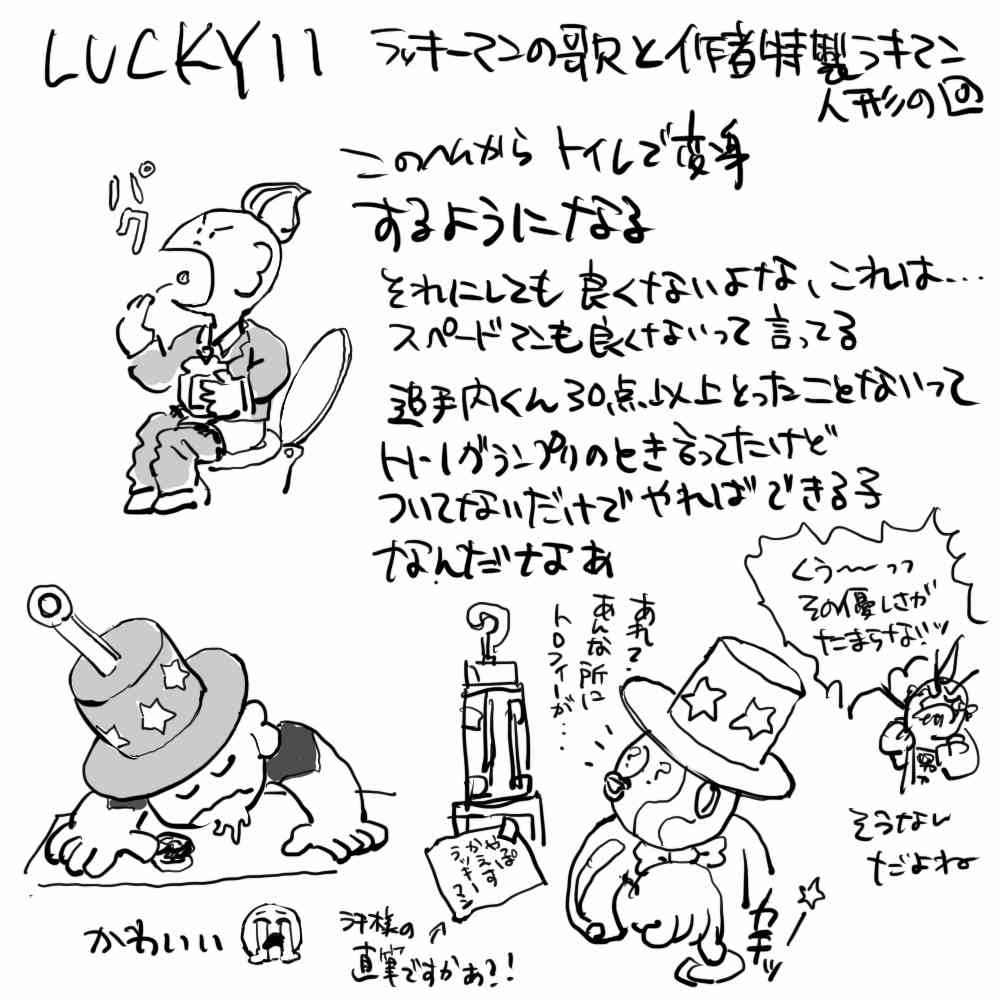 LUCKY11 ラッキーマンの歌と作者特製ラキマン
人形の回
パク
このへんからトイレで変身
するようになる
それにしても良くないよな、これは…
スペードマンも良くないって言ってる
追手内くん30点以上とったことないって
トーレグランプリのとき言ってたけど
ついてないだけでやればできる子
なんだなぁ
くぅ〜っっ
その優しさが
たまらないッ
あれ?
あんな所に
トロフィーが…
やっぱ
かえす
ラッキーマン
そうなん
だよね
かわいい
直筆ですかぁ?!
カキッ